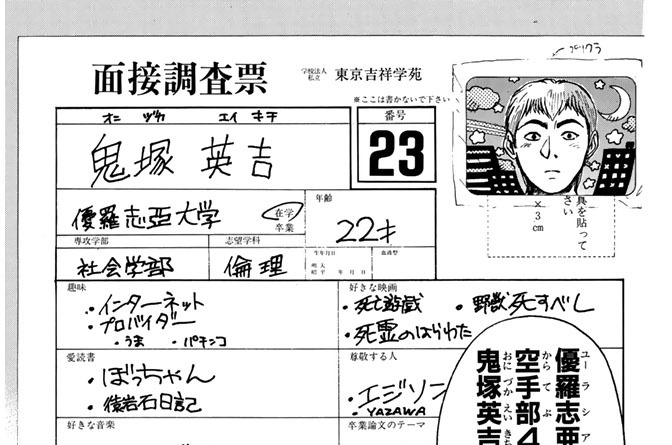 プリクラ
面接調査票
学校法人
私立
東京吉祥学苑
※ここは書かないで下さい
オニ ヅカ エイ キチ
鬼塚 英吉
番号
23
優羅志亜大学
在学
卒業
年齢
22才
専攻学部
社会学部
志望学科
倫理
生年月日
血液型
明 大
昭 平 年 月 日
具を貼って
さい
×3cm
趣味
・インターネット
・プロバイダー
・うま ・パチンコ
好きな映画
・死亡遊戯 ・野獣死すべし
・死霊のはらわた
愛読書
・ぼっちゃん
・猿岩石日記
尊敬する人
・エジソン
・YAZAWA
好きな音楽
卒業論文のテーマ
優羅志亜
ユーラシア
空手部4
からてぶ
鬼塚英吉
おにづかえいきち